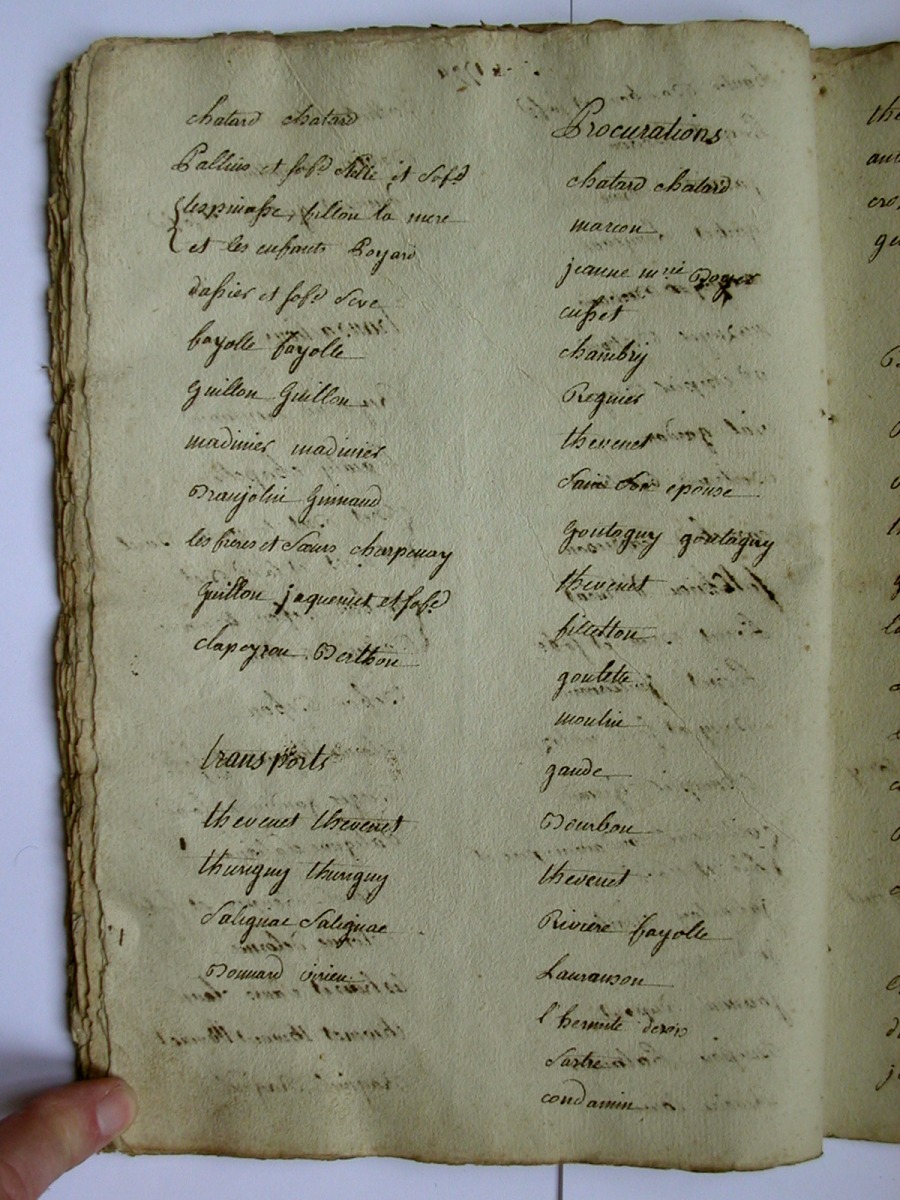 chatard chatard
Pallius et sofd et sofd
Lespinasse, fillon la mere
et les enfants Poyard
dassier et sofd Seve
fayolle fayolle
Guillon Guillon
madinier madinier
Draujolin Guinand
les freres et Sœurs charpenay
Guillon jaquemet et sofd
clapeyron Berthon
transports
thevenet thevenet
thurigny thurigny
Salignac Salignac
Bonnard virieu
Procurations
chatard chatard
marcon
jeanne mrie Boyer
cusset
chambry
Regnier
thevenet
epouse
goutagny goutagny
thevenet
filletton
goutelle
moulin
gaude
Bourbon
thevenet
Riviere fayolle
Lauranson
l'hermite
Sartre
condamin